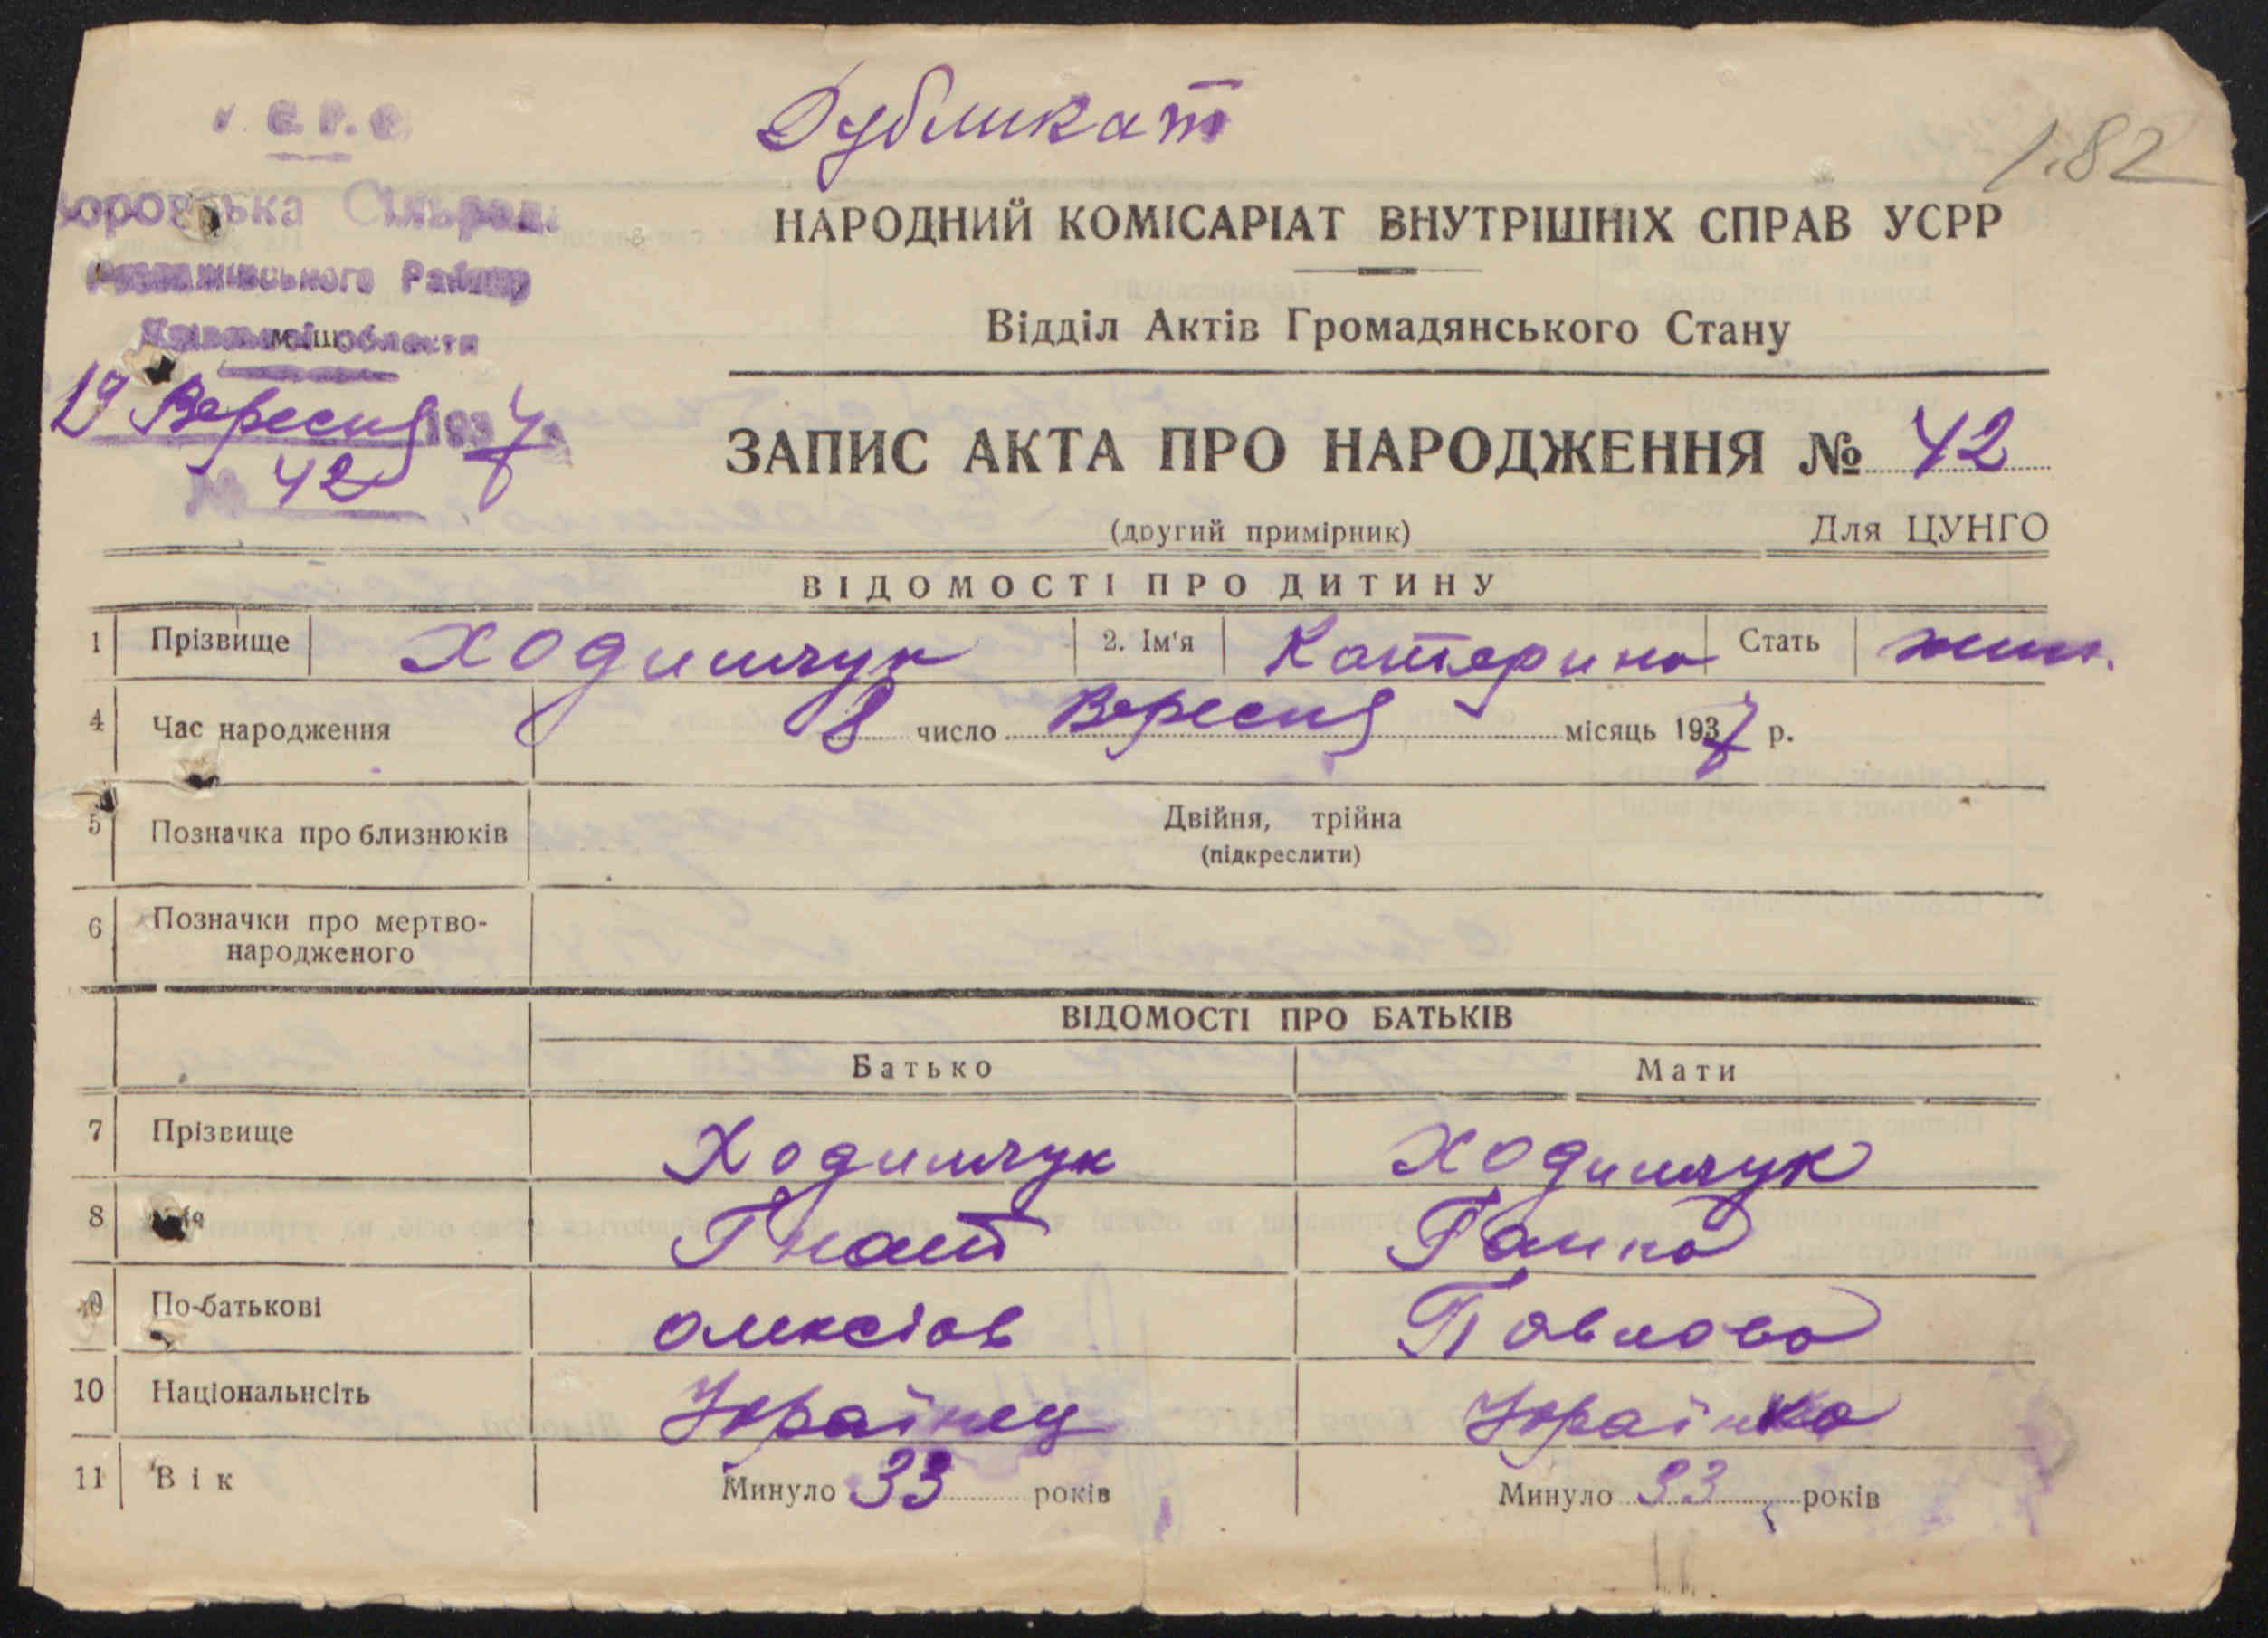 Дубликат
1.82
Сільрад.
Района
області
НАРОДНИЙ КОМІСАРІАТ ВНУТРІШНІХ СПРАВ УСРР
Відділ Актів Громадянського Стану
19 Вересня 1937
№ 42
ЗАПИС АКТА ПРО НАРОДЖЕННЯ № 42
(другий примірник) Для ЦУНГО
ВІДОМОСТІ ПРО ДИТИНУ
1 Прізвище Ходимчук 2. Ім'я Катерина Стать жін.
4 Час народження 8 число Вересня місяць 1937 р.
5 Позначка про близнюків Двійня, трійна
(підкреслити)
6 Позначки про мертво-
народженого
ВІДОМОСТІ ПРО БАТЬКІВ
Батько Мати
7 Прізвище Ходимчук Ходимчук
8 Гнат Ганна
9 По-батькові олексіов Павлова
10 Національнсіть Українец Українка
11 Вік Минуло 33 років Минуло 33 років